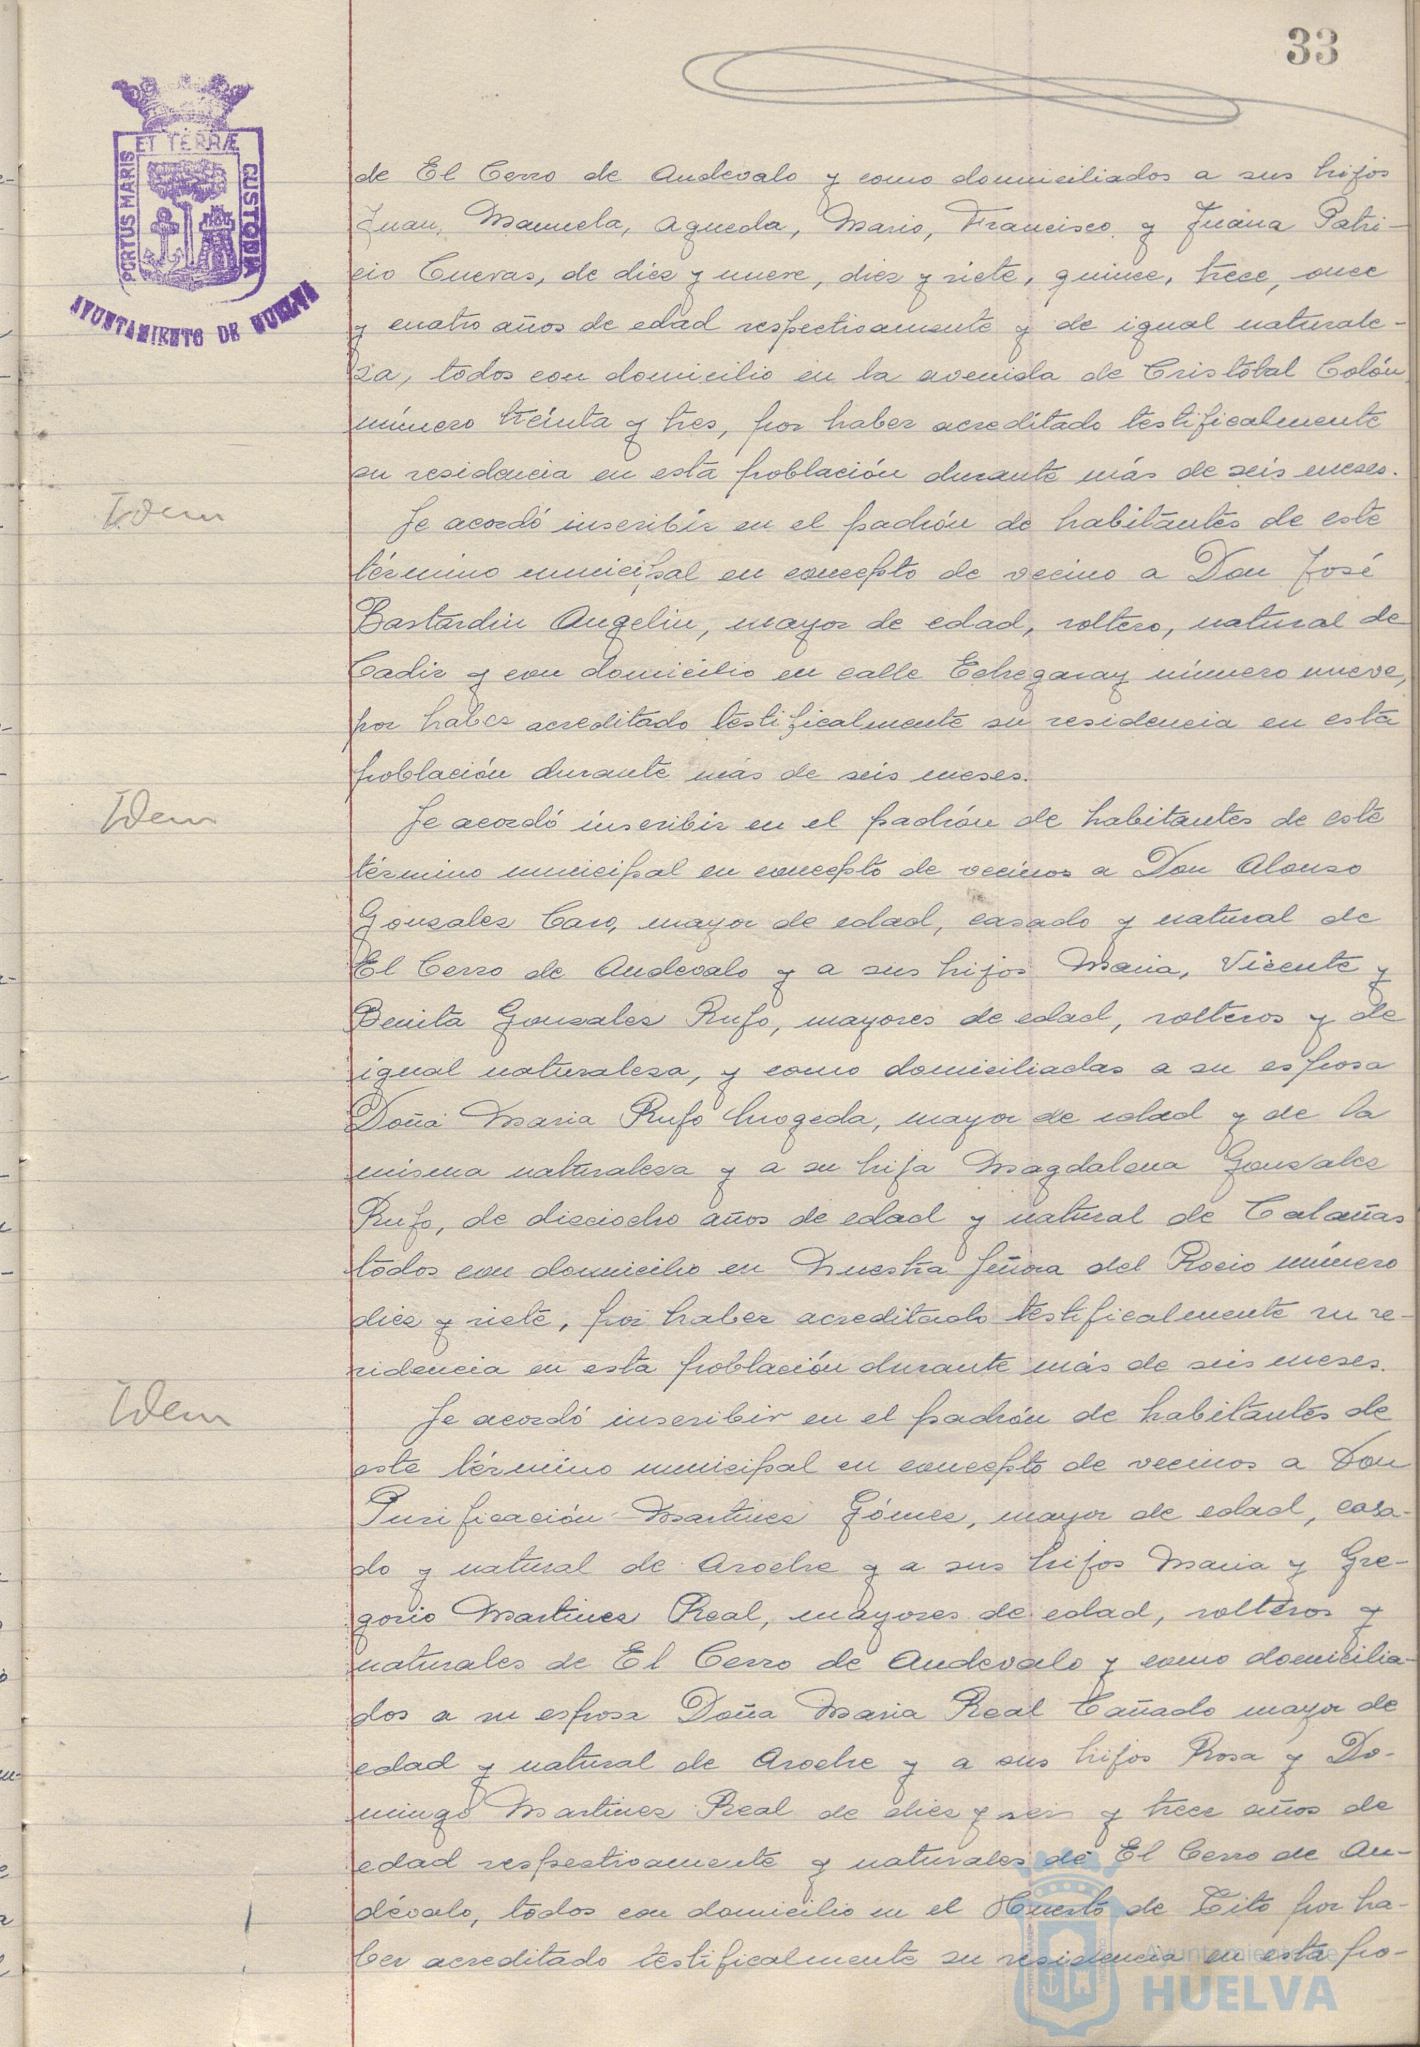 33
PORTUS MARIS ET TERRÆ CUSTODIA
AYUNTAMIENTO DE HUELVA
de El Cerro de Andevalo y como domiciliados a sus hijos
Juan, Manuela, Agueda, Mario, Francisco y Juana Patri-
cio Cuevas, de diez y nueve, diez y siete, quince, trece, once
y cuatro años de edad respectivamente y de igual naturale-
za, todos con domicilio en la avenida de Cristóbal Colón,
número treinta y tres, por haber acreditado testificalmente
su residencia en esta población durante más de seis meses.
Idem
Se acordó inscribir en el padrón de habitantes de este
término municipal en concepto de vecino a Don José
Bastardin Angelin, mayor de edad, soltero, natural de
Cadiz y con domicilio en calle Echegaray número nueve,
por haber acreditado testificalmente su residencia en esta
población durante más de seis meses.
Idem
Se acordó inscribir en el padrón de habitantes de este
término municipal en concepto de vecinos a Don Alonso
Gonzalez Caro, mayor de edad, casado y natural de
El Cerro de Andevalo y a sus hijos Maria, Vicente y
Benita Gonzalez Rufo, mayores de edad, solteros y de
igual naturaleza, y como domiciliadas a su esposa
Doña Maria Rufo mayor de edad y de la
misma naturaleza y a su hija Magdalena Gonzalez
Rufo, de dieciocho años de edad y natural de Calañas
todos con domicilio en Nuestra Señora del Rocio número
diez y siete, por haber acreditado testificalmente su re-
sidencia en esta población durante más de seis meses.
Idem
Se acordó inscribir en el padrón de habitantes de
este término municipal en concepto de vecinos a Don
Purificación Martinez Gómez, mayor de edad, casa-
do y natural de Aroche y a sus hijos Maria y Gre-
gorio Martinez Real, mayores de edad, solteros y
naturales de El Cerro de Andevalo y como domicilia-
dos a su esposa Doña Maria Real Cañado mayor de
edad y natural de Aroche y a sus hijos Rosa y Do-
mingo Martinez Real de diez y seis y trece años de
edad respectivamente y naturales de El Cerro de An-
dévalo, todos con domicilio en el Huerto de Tito por ha-
ber acreditado testificalmente su residencia en esta po-
Ayuntamiento de
HUELVA